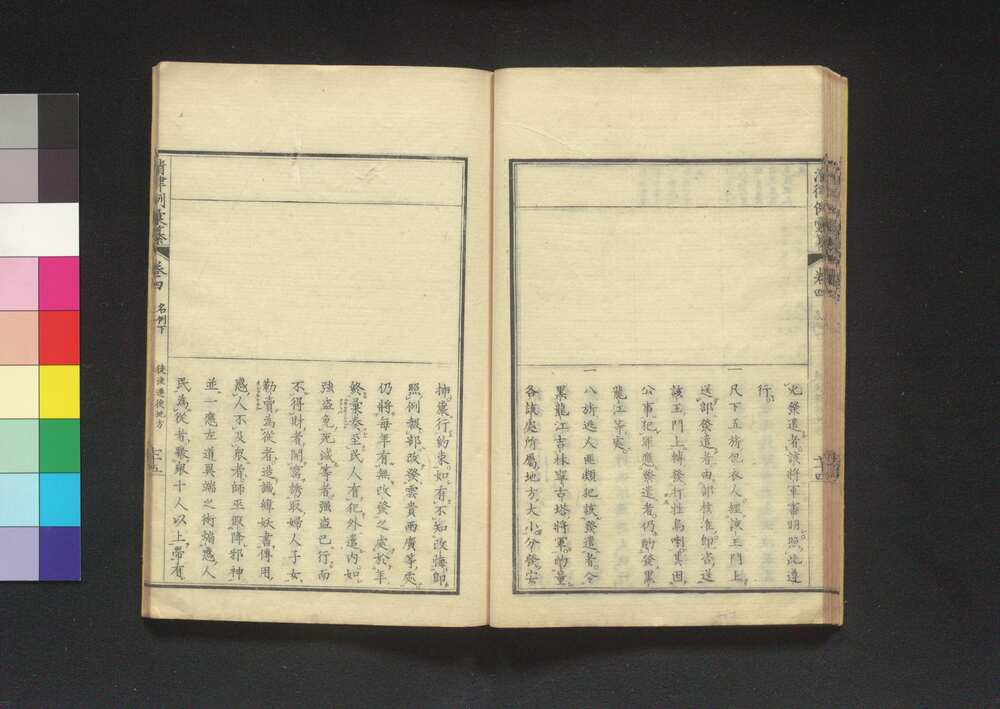 清律例彙纂
卷四
十四
充發遣者該將軍審明照此遵
行
一尺下五旗包衣人經該王門上
送部發遣者由部核准即咨送
該王門上轉發打牲烏喇其因
公事犯罪應發遣者仍酌發黑
龍江等處
一八旗逃人匪類犯該發遣者令
黑龍江吉林寧古塔將軍酌量
各該處所屬地方大小分發安
揷嚴行約束如有不知改悔即
照例報部改發雲貴兩廣等處
仍將每年有無改發之處於年
終彙奏至民人有犯外遣內如
強盗免死減等者強盗已行而
不得財者開窩誘取婦人子女
勒賣為從者造讖緯妖書傳用
惑人不及眾者師巫假降邪神
並一應左道異端之術煽惑人
民為從者歛銀十人以上帶有
清律例彙纂
卷四
名例下
徒流遷徙地方
十五